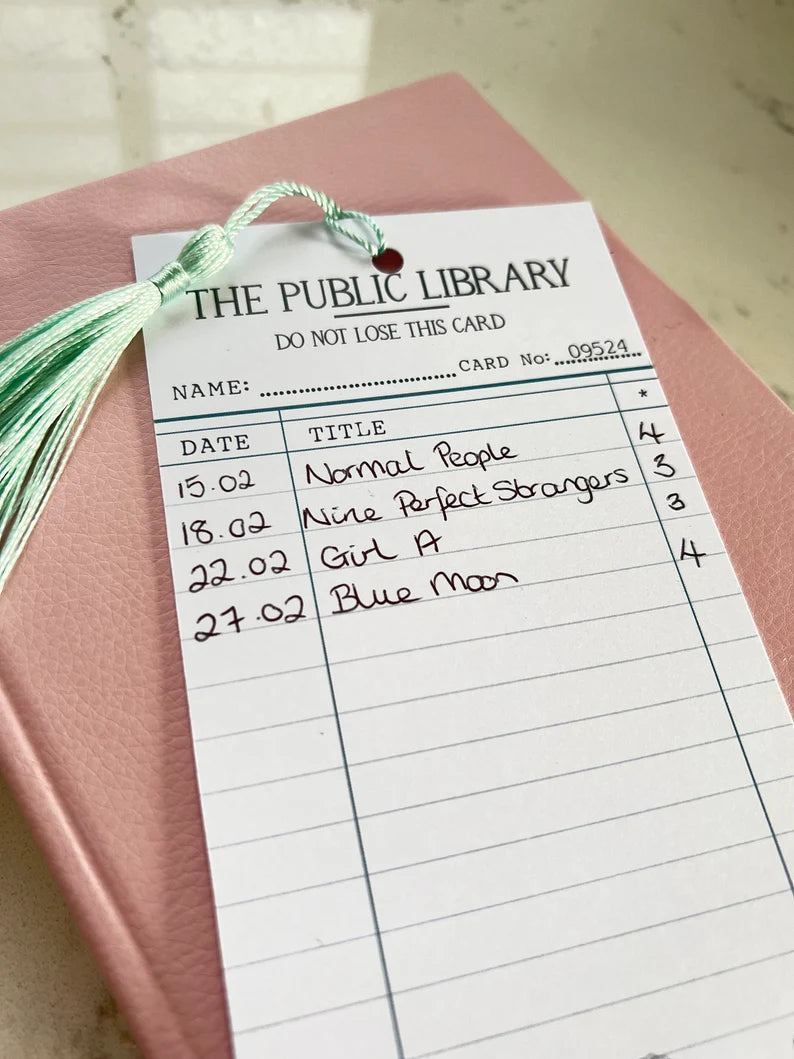 THE PUBLIC LIBRARY
DO NOT LOSE THIS CARD
NAME: .............................. CARD No: ...09524...
DATE TITLE *
15.02 Normal People 4
18.02 Nine Perfect Strangers 3
22.02 Girl A 3
27.02 Blue Moon 4